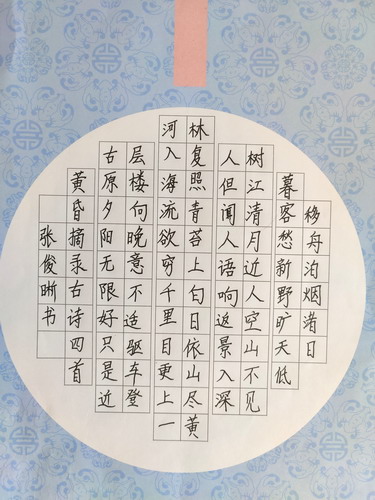 移舟泊烟渚日
暮客愁新野旷天低
树江清月近人空山不见
人但闻人语响返景入深
林复照青苔上白日依山尽黄
河入海流欲穷千里目更上一
层楼向晚意不适驱车登
古原夕阳无限好只是近
黄昏摘录古诗四首
张俊晰书